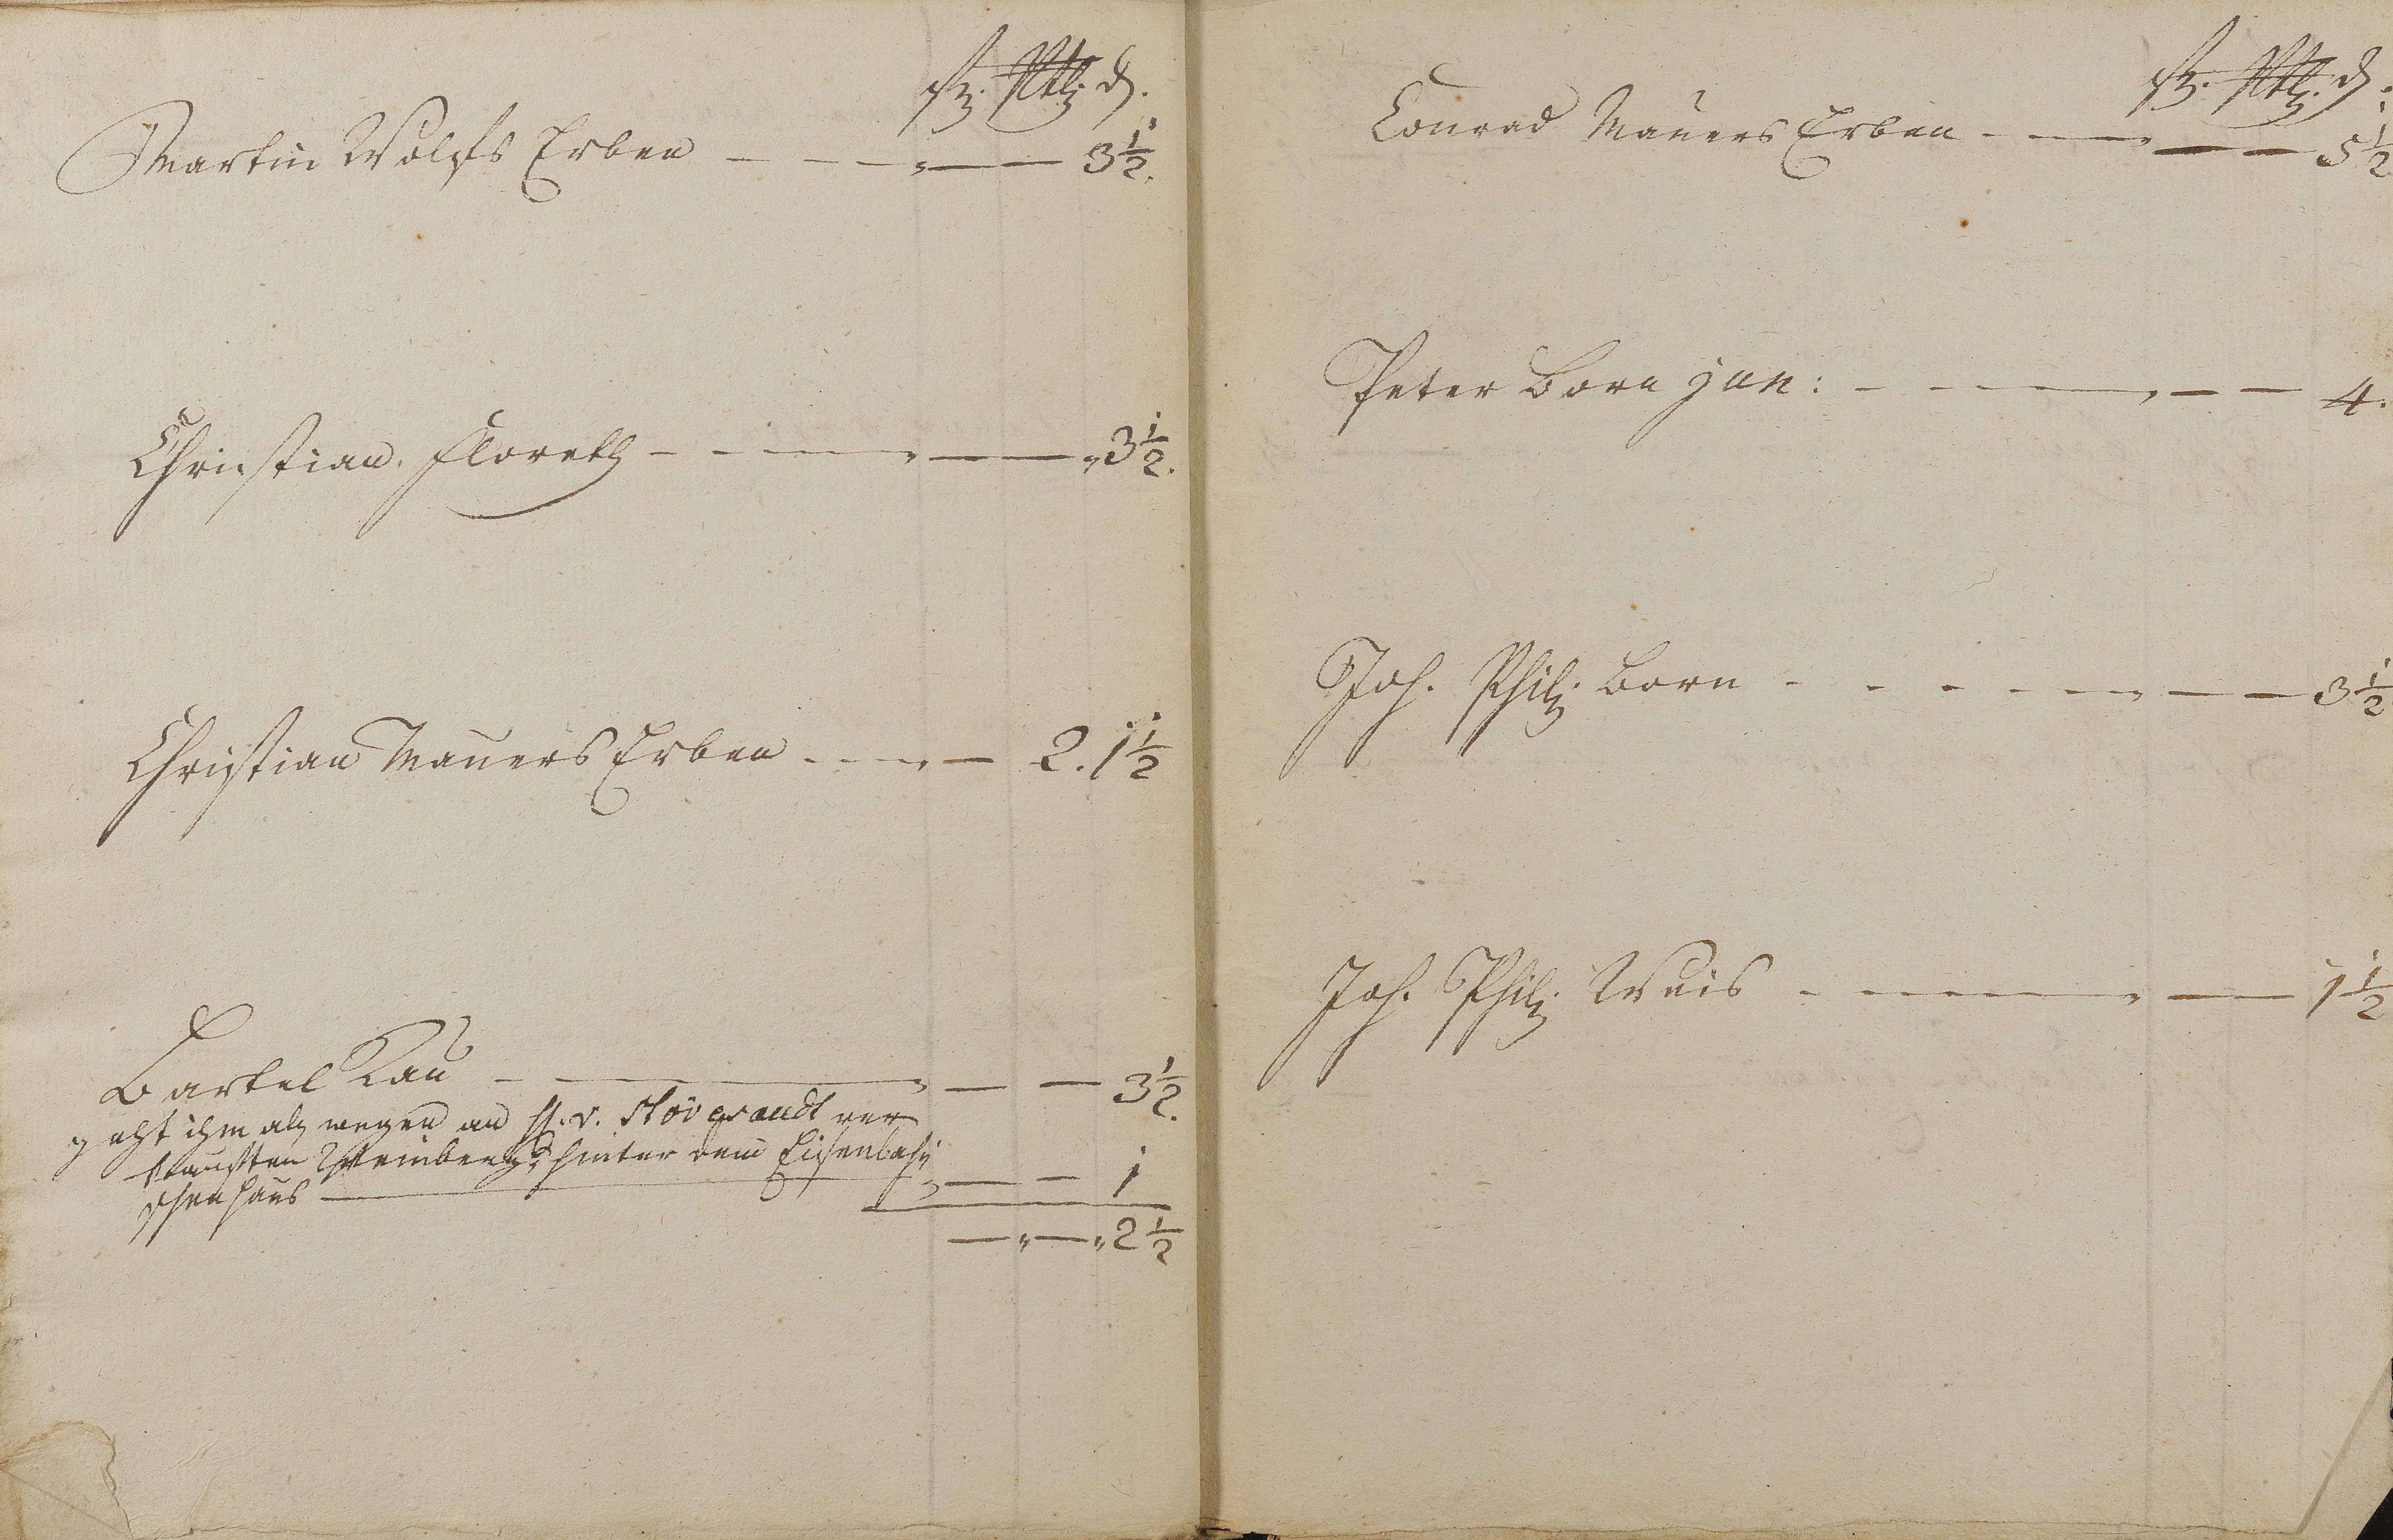 Martin Wolfs Erben — — — „ — — 3½.
Christian Floreth — — — „ — — „ 3½.
Christian Mauers Erben - - - „ — 2. 1½
Bartel Lau — — „ — — 3½.
geht ihm ab wegen an H. v. ver
tauschten Weinberg hinter dem
haus — „ — — 1
— „ — „ 2½
Conrad Mauers Erben - — — „ — — 5½
Peter Born jun: - - — „ — — 4.
Joh. Phil. Born - - - - — „ — — 3½
Joh. Phil. Weis - - — „ — — 1½